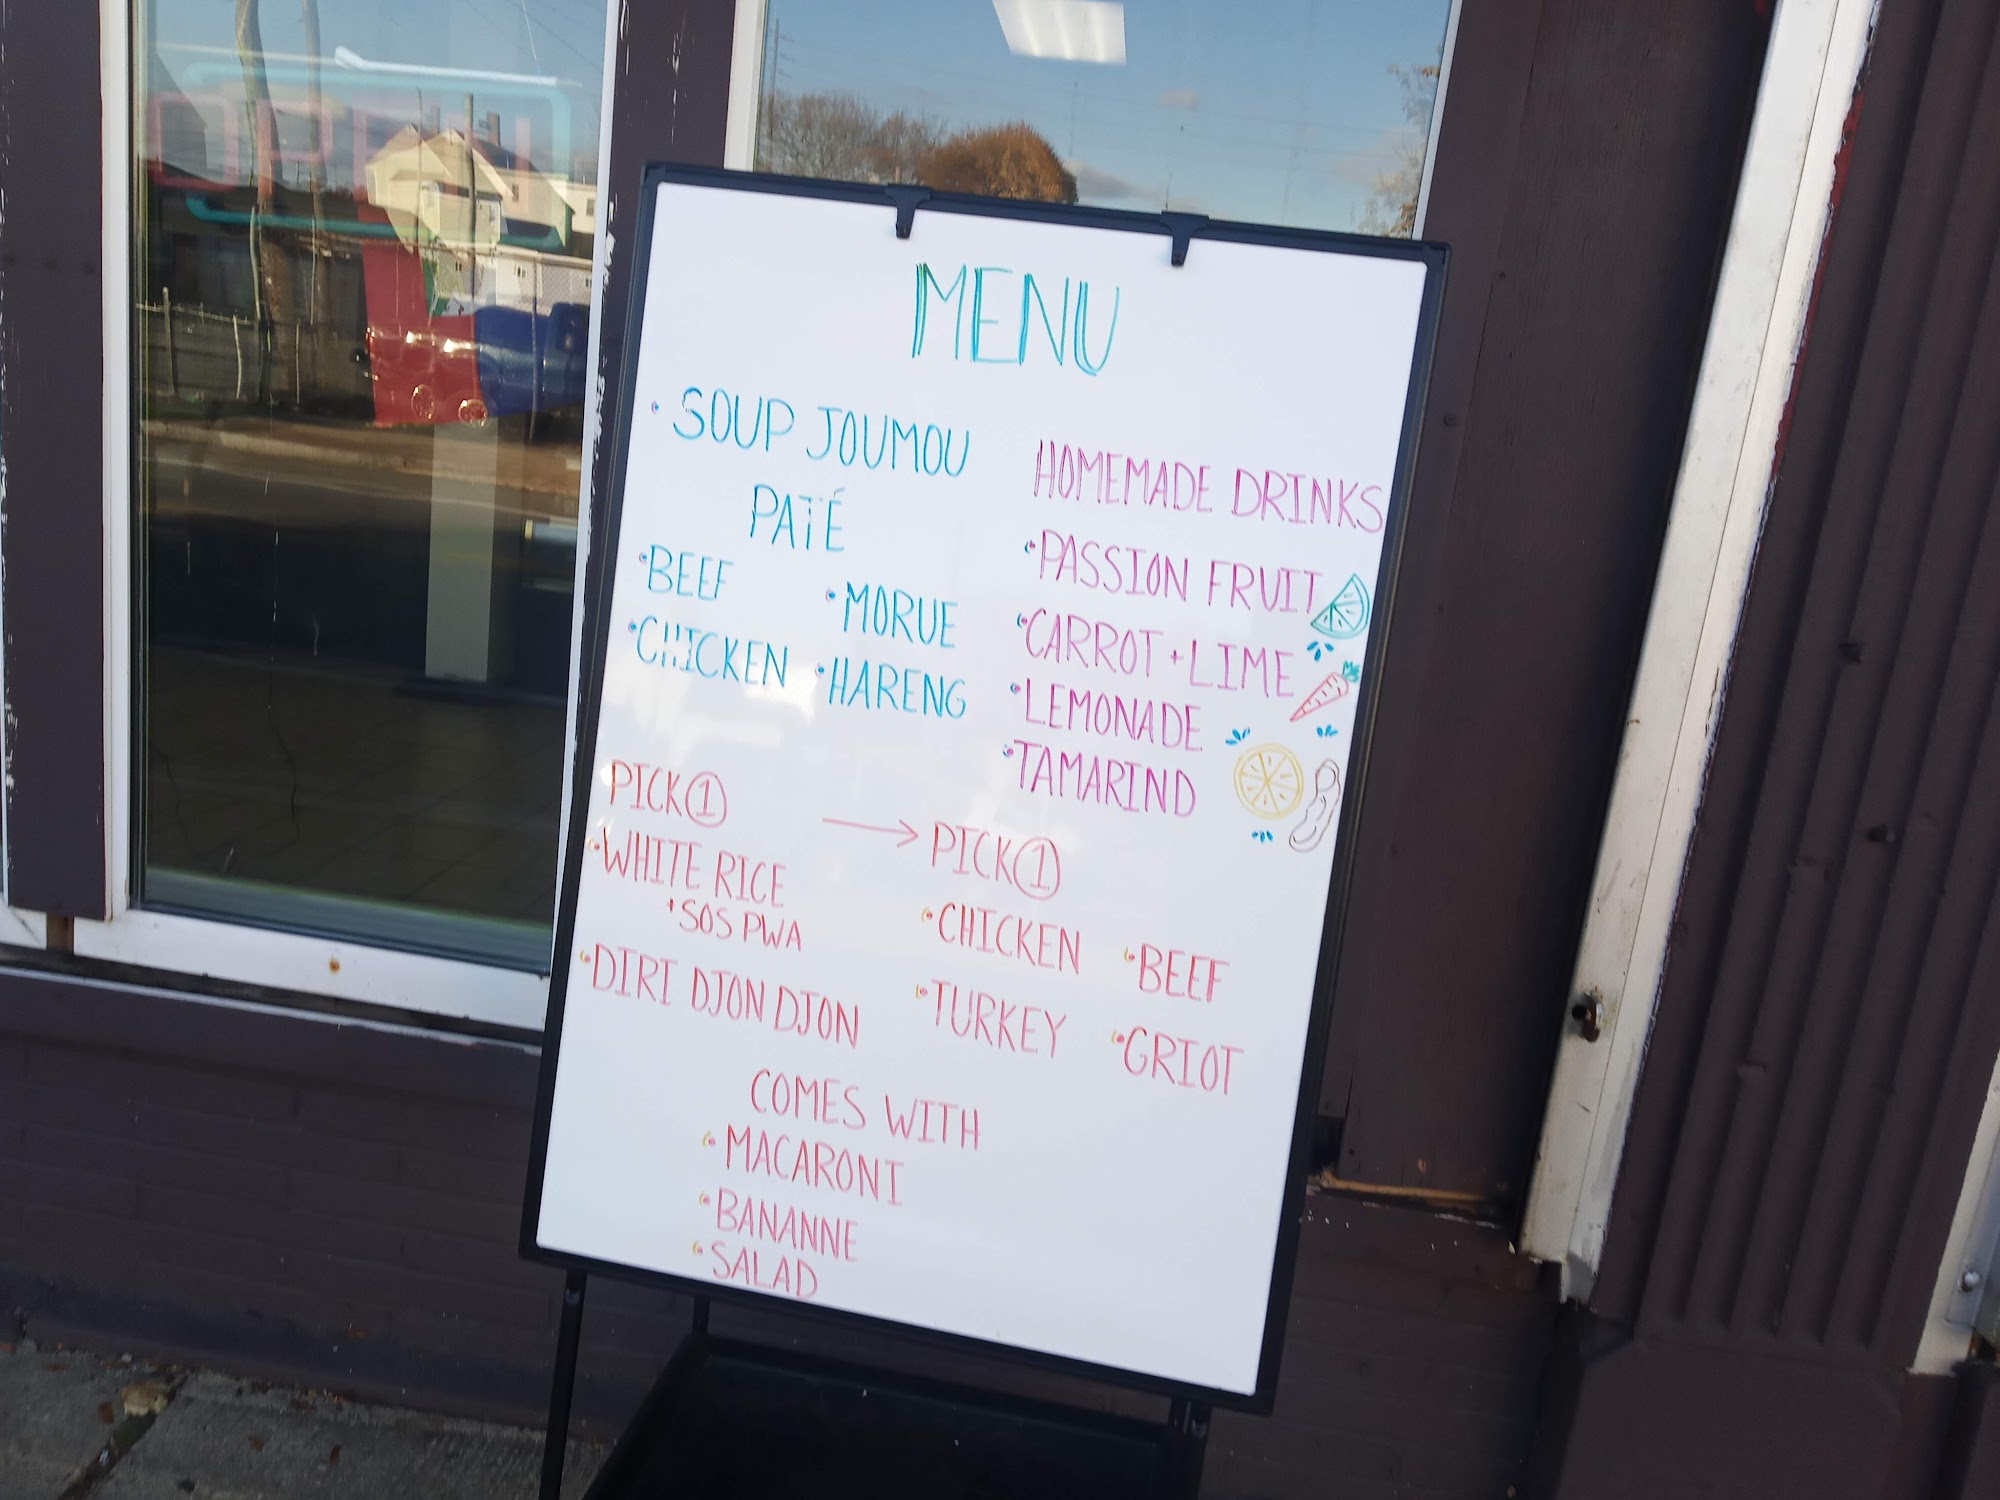 OPEN
MENU
• SOUP JOUMOU
PATÉ
• BEEF
• MORUE
• CHICKEN
• HARENG
HOMEMADE DRINKS
• PASSION FRUIT
• CARROT + LIME
• LEMONADE
• TAMARIND
PICK ①
• WHITE RICE
+ SOS PWA
• DIRI DJON DJON
→ PICK ①
• CHICKEN
• BEEF
• TURKEY
• GRIOT
COMES WITH
• MACARONI
• BANANNE
• SALAD